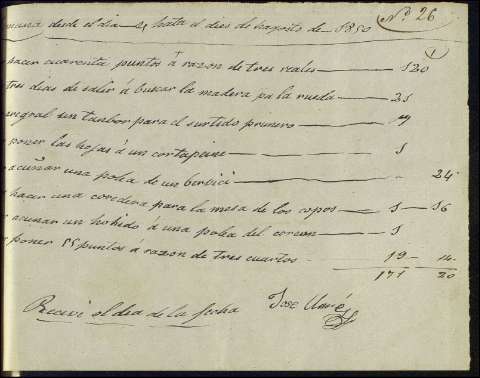 Nº 26
mana desde el dia 4 hata el dies de hagosto de 1850
1
hacer cuarenta puntos á razon de tres reales 120
tres dias de salir á buscar la madera pa la rueda 21
un tanbor para el surtido primero
poner las hojas á un 1
acuñar una polea de un 24
hacer una corredera para la mesa de los copos 1 16
acuñar un á una polea del 1
poner 55 puntos á razon de tres cuartos 19 14
171 20
Recivi el dia de la fecha Jose